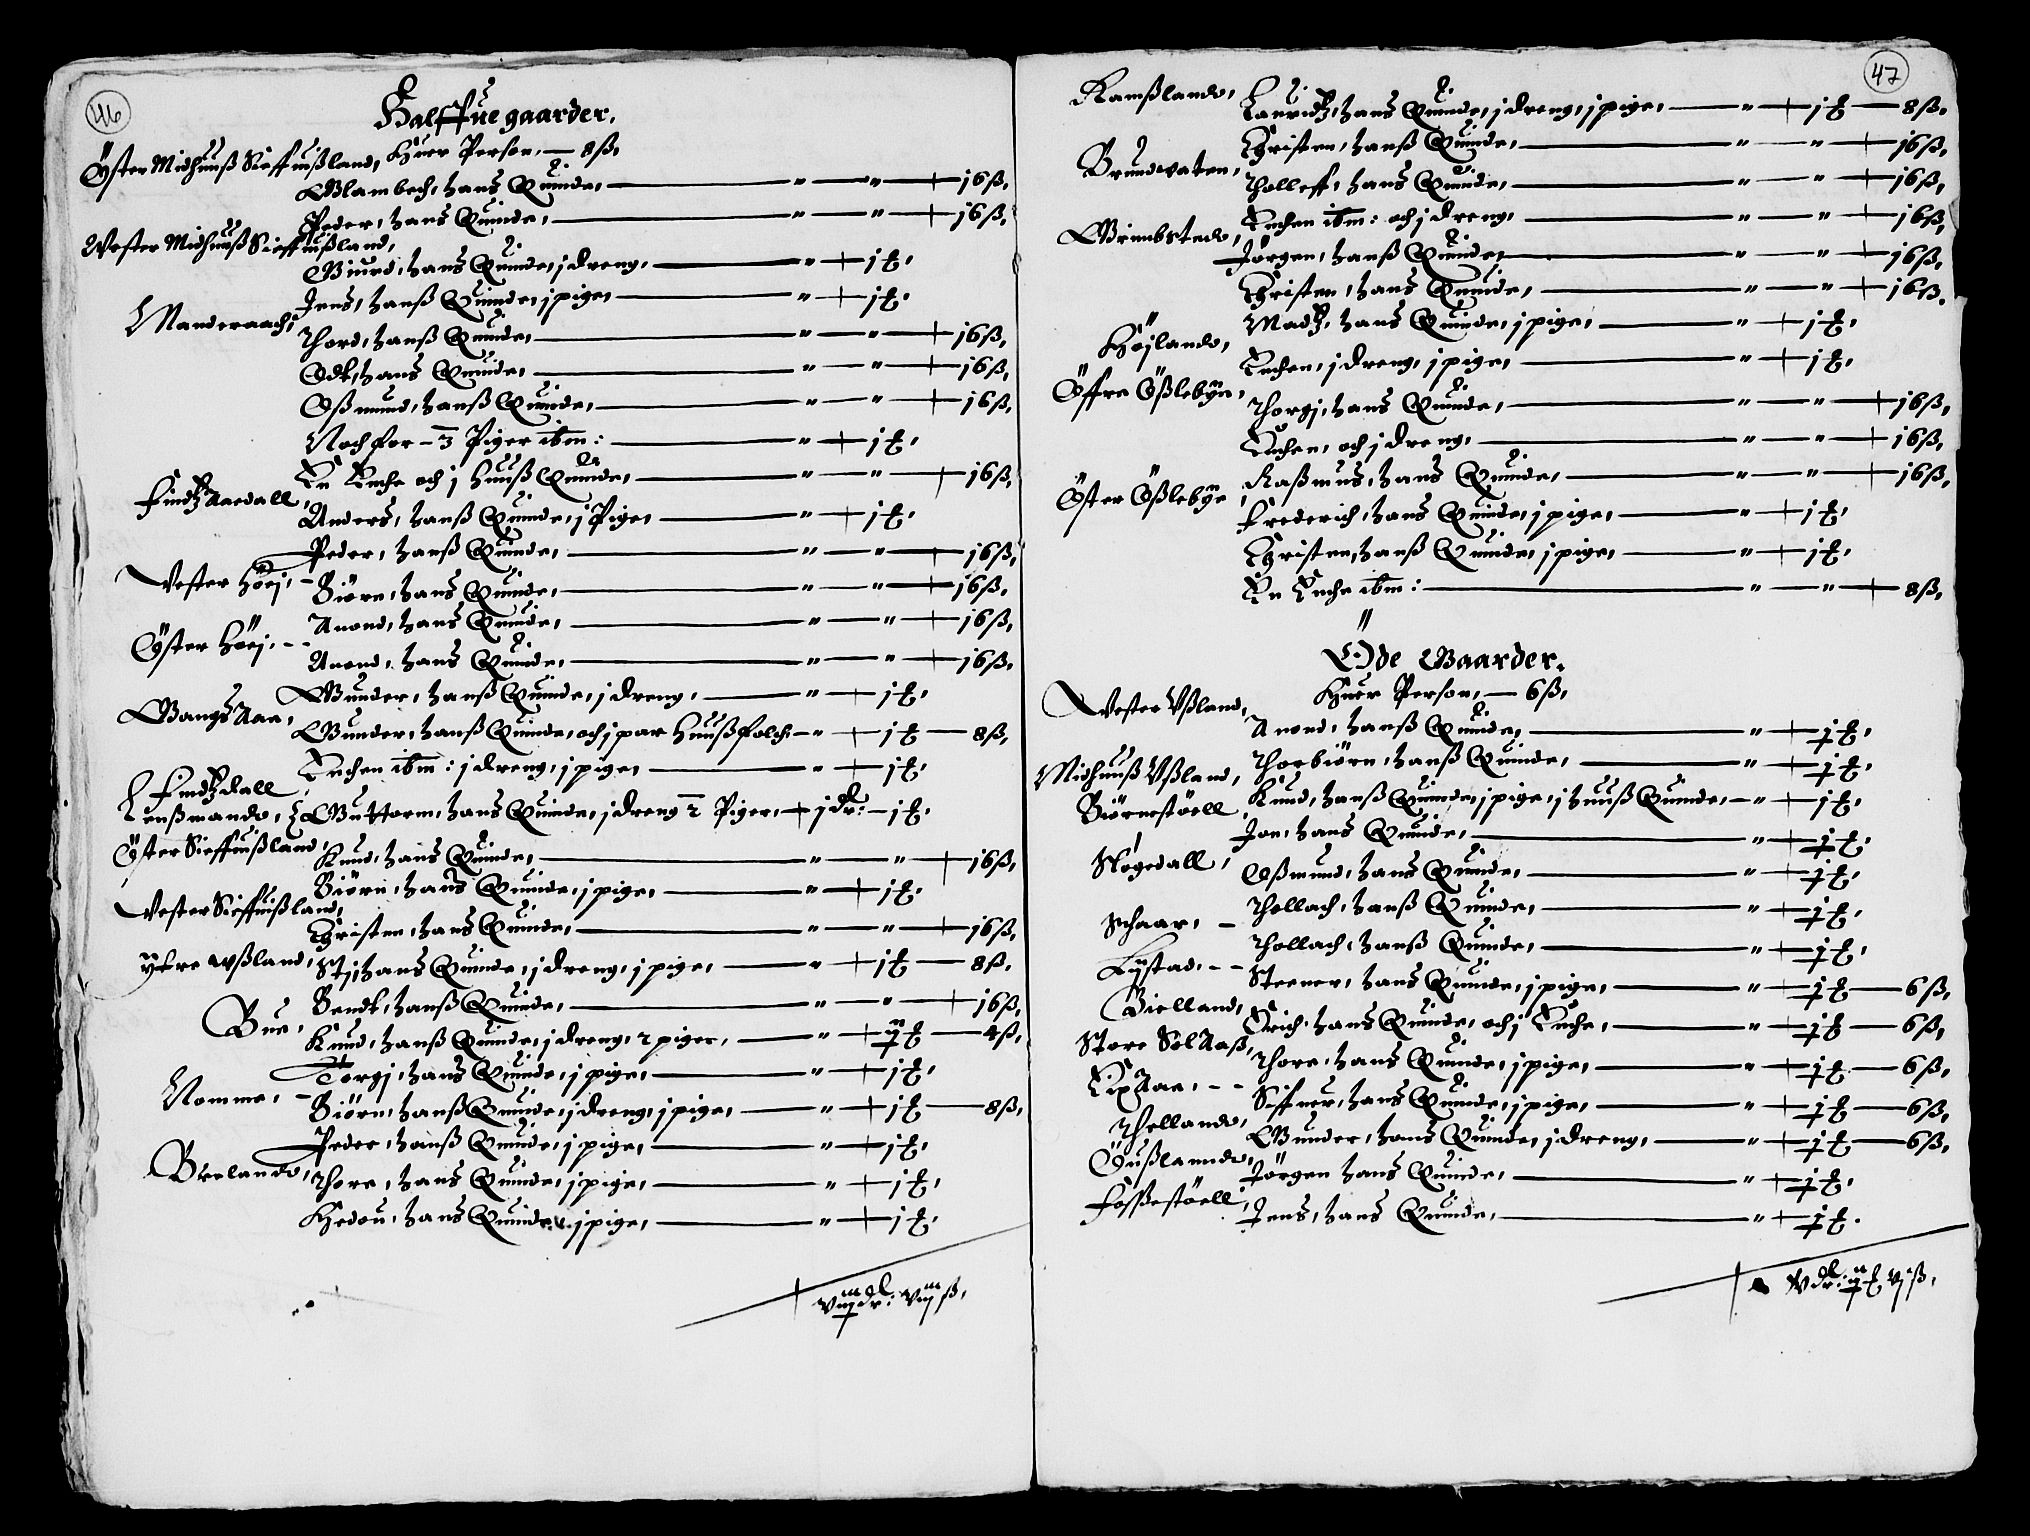 46
Halffue gaarder.
Øster Midhuuß Sieffuißland, Huer Person, — 8 ß,
Glambech, hans Quinde, — " — " — 16 ß,
Peder, hans Quinde, — " — " — 16 ß,
Vester Midhuuß Sieffuißland,
Giurd, hans Quinde, j dreng, — " — j ℔,
Jens, hanß Quinde, j pige, — " — j ℔,
Manderaach, Thord, hanß Quinde, — " — " — 16 ß,
Odt, hans Quinde, — " — " — 16 ß,
Oßmund, hanß Quinde, — " — " — 16 ß,
Noch for – 3 Piger ibm: — " — j ℔,
En Enche och j huuß Quinde, — " — " — 16 ß,
Findtz Aaedall, Anders, hanß Quinde, j Pige, — " — j ℔,
Peder, hanß Quinde, — " — " — 16 ß,
Vester Høej, – Biørn, hans Quinde, — " — " — 16 ß,
Anond, hans Quinde, — " — " — 16 ß,
Øster Høej, - - Anond, hans Quinde, — " — " — 16 ß,
Gunder, hanß Quinde, j dreng, — " — j ℔,
Gangs Aaa, Gunder, hanß Quinde, och j par Huußfolch – " — j ℔ — 8 ß,
Enchen ibm: j dreng, j pige, — " — j ℔,
Findtz dall
Lenßmando, Guttorm, hans Quinde, j dreng 2 Piger, — j dr: – j ℔,
Øster Sieffuißland, Knud, hans Quinde, — " — " — 16 ß,
Biørn, hans Quinde, j pige, — " — j ℔,
Vester Sieffuißland, Christen, hans Quinde, — " — " — 16 ß,
Ytre Aßland, Stj, hans Quinde, j dreng, j pige, — " — j ℔ — 8 ß,
Bendt, hanß Quinde, — " — " — 16 ß,
Bue, Knud, hanß Quinde, j dreng, 2 piger, — " — ij ℔ — 4 ß,
Torgj, hans Quinde, j pige, — " — j ℔,
Nomme, – Biørn, hanß Quinde, j dreng, j pige, — " — j ℔ — 8 ß,
Peder, hanß Quinde, j pige, — " — j ℔,
Brelando, Thore, hans Quinde, j pige, — " — j ℔,
Hedou, hans Quinde, j pige, — " — j ℔,
viij dr: viij ß,
47
Ramßlando, Lauridtz, hans Quinde, j dreng, j pige, — " — j ℔ — 8 ß,
Christen, hanß Quinde, — " — " — 16 ß,
Brundvaten, Tholleff, hans Quinde, — " — " — 16 ß,
Enchen ibm: och j dreng, — " — " — 16 ß,
Grimbstedo, Jørgen, hanß Quinde, — " — " — 16 ß,
Christen, hans Quinde, — " — " — 16 ß,
Madtz, hans Quinde, j pige, — " — j ℔,
Højlando, Enchen, j dreng, j pige, — " — j ℔,
Øffre Ößlebye, Thorgj, hans Quinde, — " — " — 16 ß,
Enchen, och j dreng, — " — " — 16 ß,
Raßmus, hans Quinde, — " — " — 16 ß,
Øster Ößlebye, Frederich, hans Quinde, j pige, — " — j ℔,
Christen, hanß Quinde, j pige, — " — j ℔,
En Enche ibm: — " — " — 8 ß,
Øde Gaarder.
Huer Person, — 6 ß,
Vester Vßland, Anond, hanß Quinde, — " — j ℔,
Thorbiørn, hanß Quinde, — " — j ℔,
Midhuuß Vßland, Knud, hanß Quinde, j pige, j huuß Quinde, – " — j ℔,
Biørnestøell, Jon, hans Quinde, — j ℔,
Sløgedall, Oßmund, hans Quinde, — " — j ℔,
Thollach, hanß Quinde, — " — j ℔,
Schaar, – Thollach, hanß Quinde, — " — j ℔,
Lystad, - - Steener, hans Quinde, j pige, — " — j ℔ — 6 ß,
Bielland, Erich, hans Quinde, och j Enche, — " — j ℔ — 6 ß,
Store Sol Aaß, Thore, hans Quinde, j pige, — " — j ℔ — 6 ß,
Kip Aaa, - - Siffuer, hans Quinde, j pige, — " — j ℔ — 6 ß,
Thellando, Gunder, hans Quinde, j dreng, — " — j ℔ — 6 ß,
Øußlanndo, Jørgen hans Quinde, — " — j ℔,
Foßßestøell, Jens, hans Quinde, — " — j ℔.
v dr: ij ℔ vj ß,